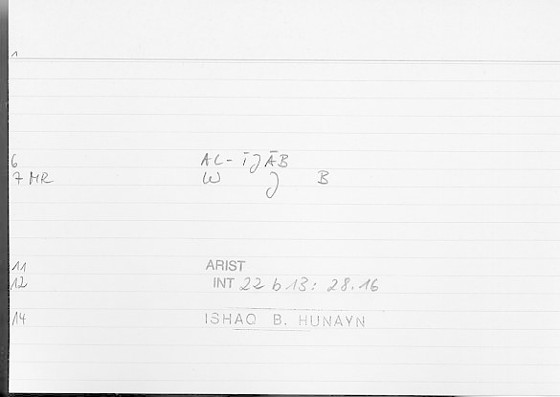 1
6 AL-ĪJĀB
7 MR W J B
11 ARIST
12 INT 22 b 13: 28.16
14 ISHAQ B. HUNAYN